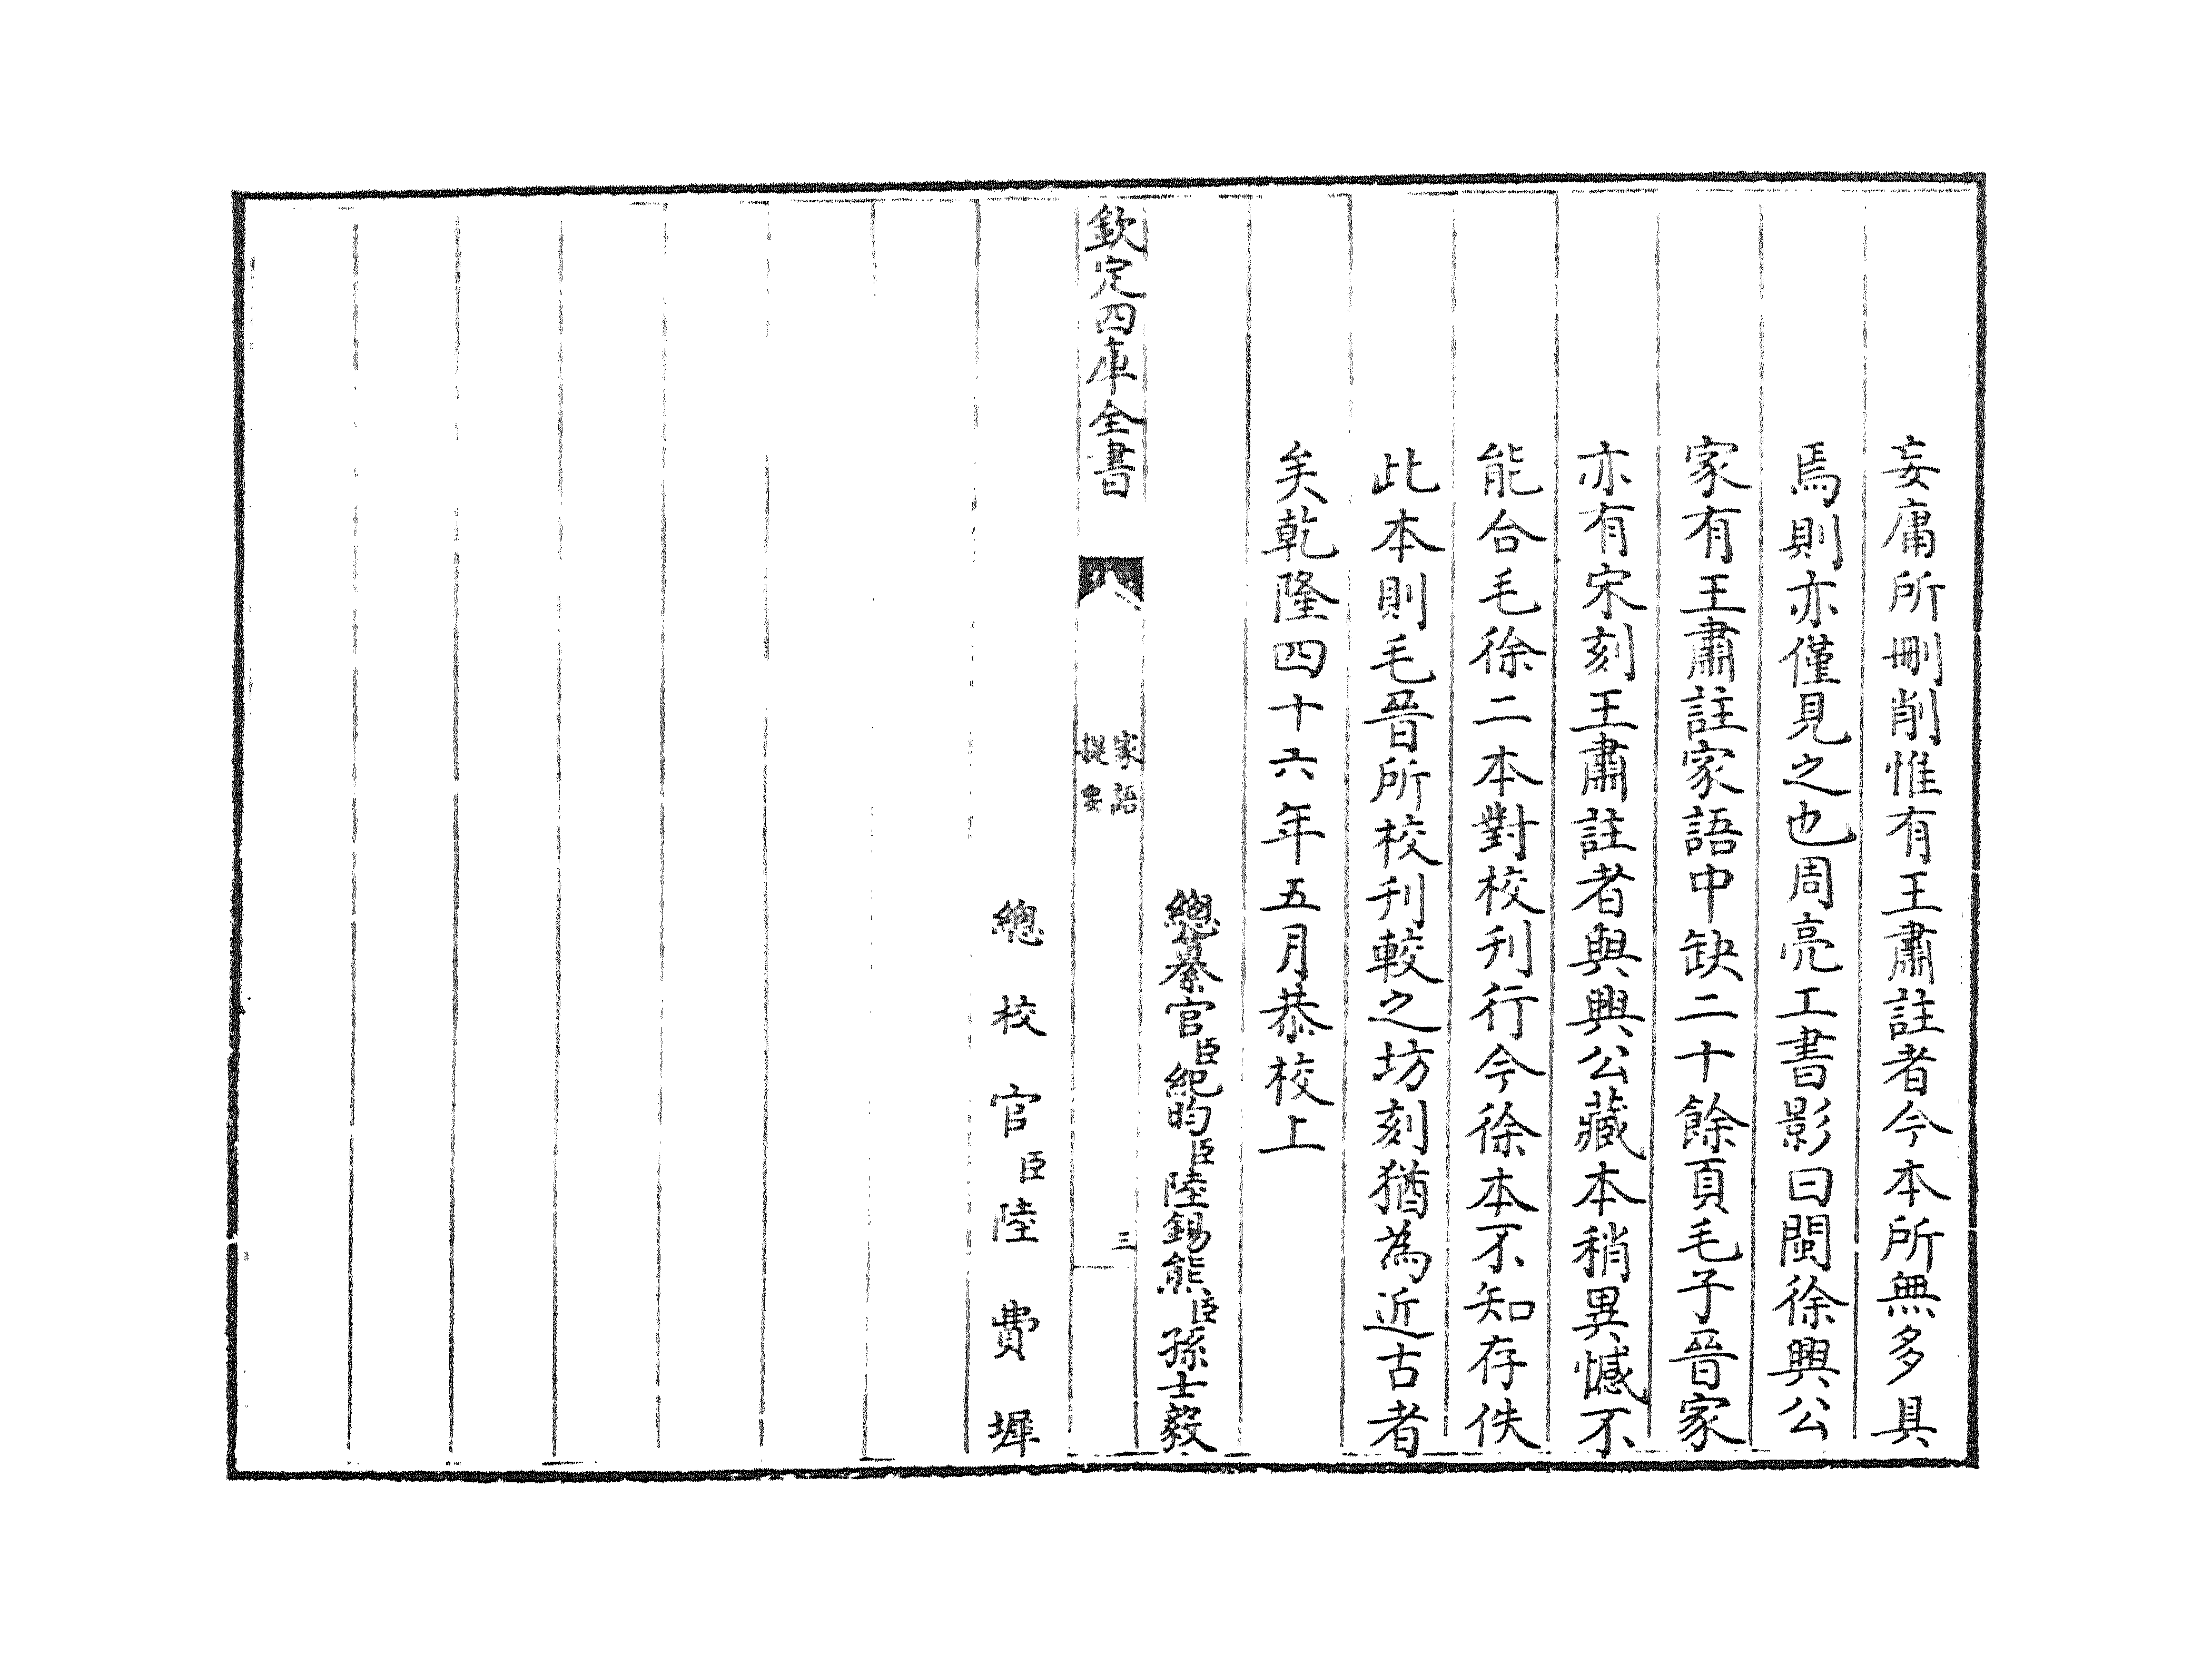 妄庸所刪削惟有王肅註者今本所無多具
焉則亦僅見之也周亮工書影曰閩徐興公
家有王肅註家語中缺二十餘頁毛子晉家
亦有宋刻王肅註者與興公藏本稍異憾不
能合毛徐二本對校刋行今徐本不知存佚
此本則毛晉所校刋較之坊刻猶為近古者
矣乾隆四十六年五月恭校上
總纂官臣紀昀臣陸錫熊臣孫士毅
欽定四庫全書
家語
提要
三
總校官臣陸費墀